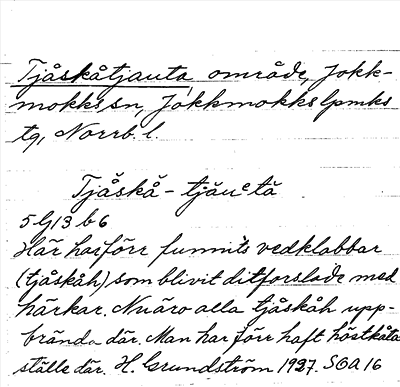 Tjåskåtjauta område, Jokk-
mokks sn, Jokkmokks lpmks
tg, Norrb. l.
Tjåskå-tjăuᵉtă
5 G 13 b 6
Här har förr funnits vedklabbar
(tjåskåh) som blivit ditforslade med
härkar. Nu äro alla tjåskåh upp-
brända där. Man har förr haft höstkåta
ställe där. H. Grundström 1927. SOA 16